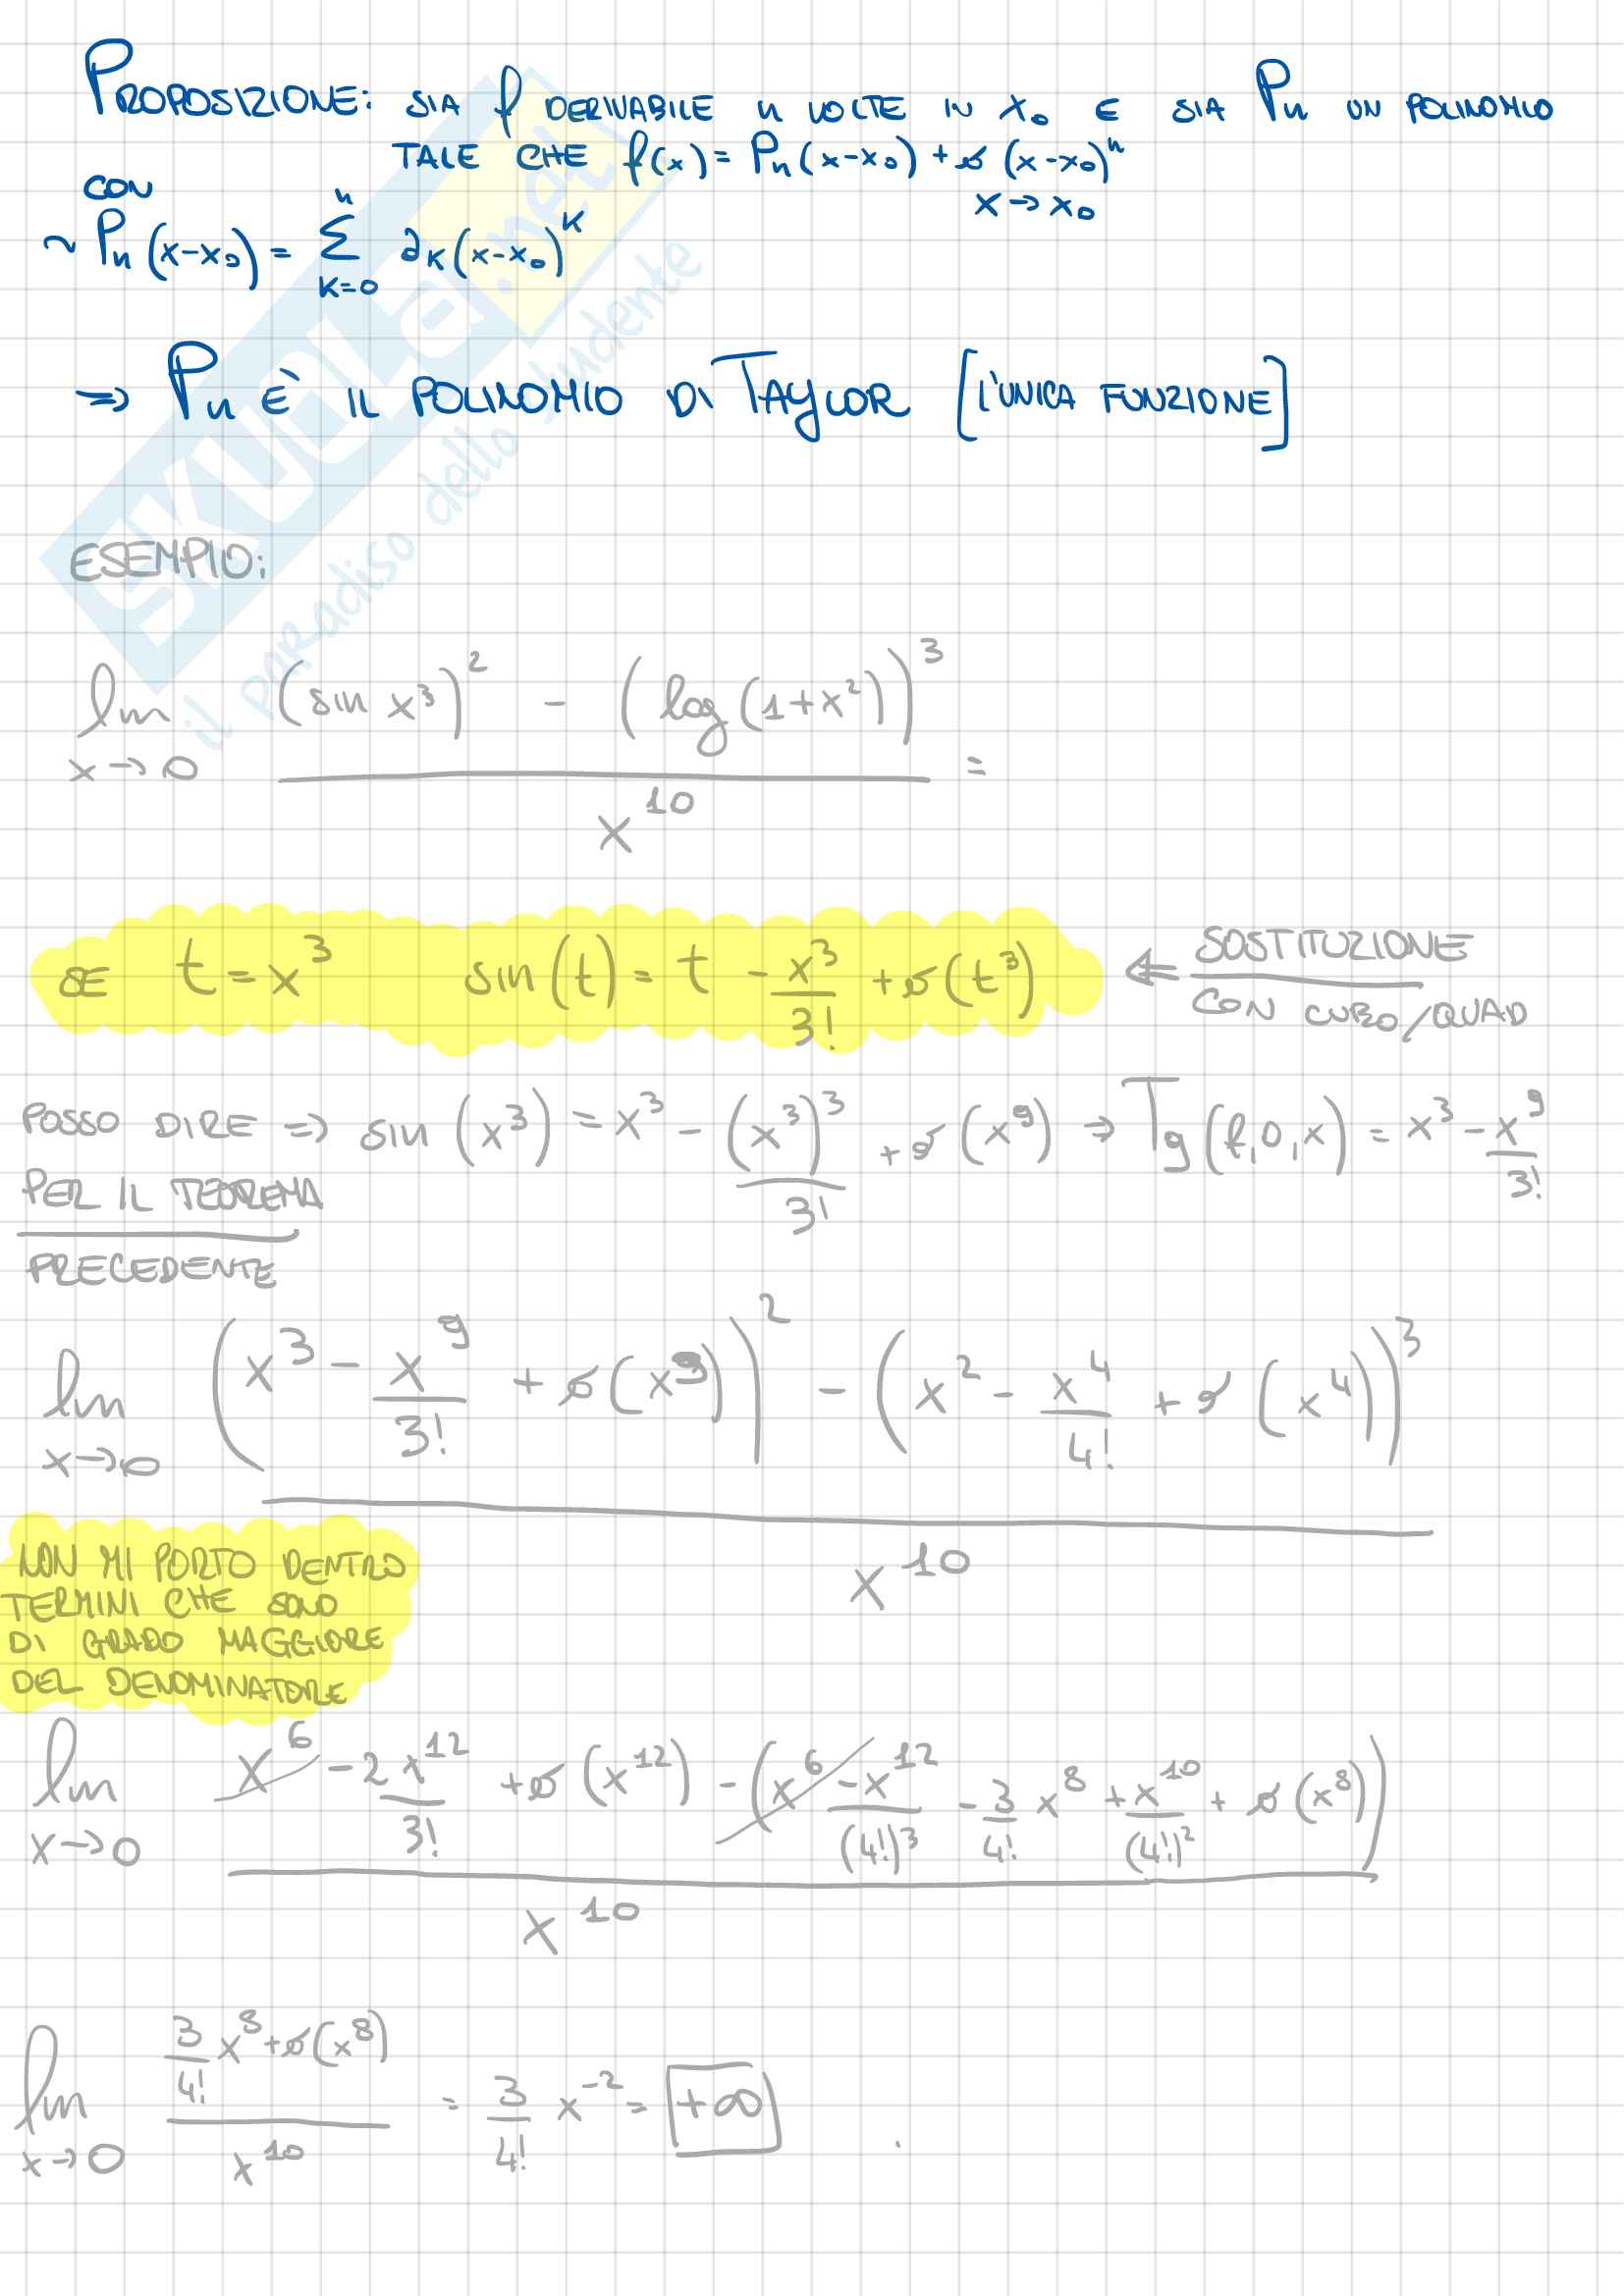 PROPOSIZIONE: SIA f DERIVABILE n VOLTE IN x₀ E SIA Pn UN POLINOMIO
TALE CHE f(x) = Pn(x-x₀) + o(x-x₀)ⁿ
x→x₀
CON
~ Pn(x-x₀) = Σ_{K=0}^{n} a_K(x-x₀)^K
⇒ Pn È IL POLINOMIO DI TAYLOR [L'UNICA FUNZIONE]
SKUOLA.net
il paradiso dello studente
ESEMPIO:
lim_{x→0} ((sin x³)² - (log(1+x²))³) / x¹⁰ =
SE t = x³ sin(t) = t - x³/3! + o(t³) ⇐ SOSTITUZIONE
CON CUBO/QUAD
POSSO DIRE ⇒ sin(x³) = x³ - (x³)³/3! + o(x⁹) → T₉(f,0,x) = x³ - x⁹/3!
PER IL TEOREMA
PRECEDENTE
lim_{x→0} ((x³ - x⁹/3! + o(x⁹))² - (x² - x⁴/4! + o(x⁴))³) / x¹⁰
NON MI PORTO DENTRO
TERMINI CHE SONO
DI GRADO MAGGIORE
DEL DENOMINATORE
lim_{x→0} (x⁶ - 2x¹²/3! + o(x¹²) - (x⁶ - x¹²/(4!)³ - 3/4! x⁸ + x¹⁰/(4!)² + o(x⁸))) / x¹⁰
lim_{x→0} (3/4! x⁸ + o(x⁸)) / x¹⁰ = 3/4! x⁻² = +∞